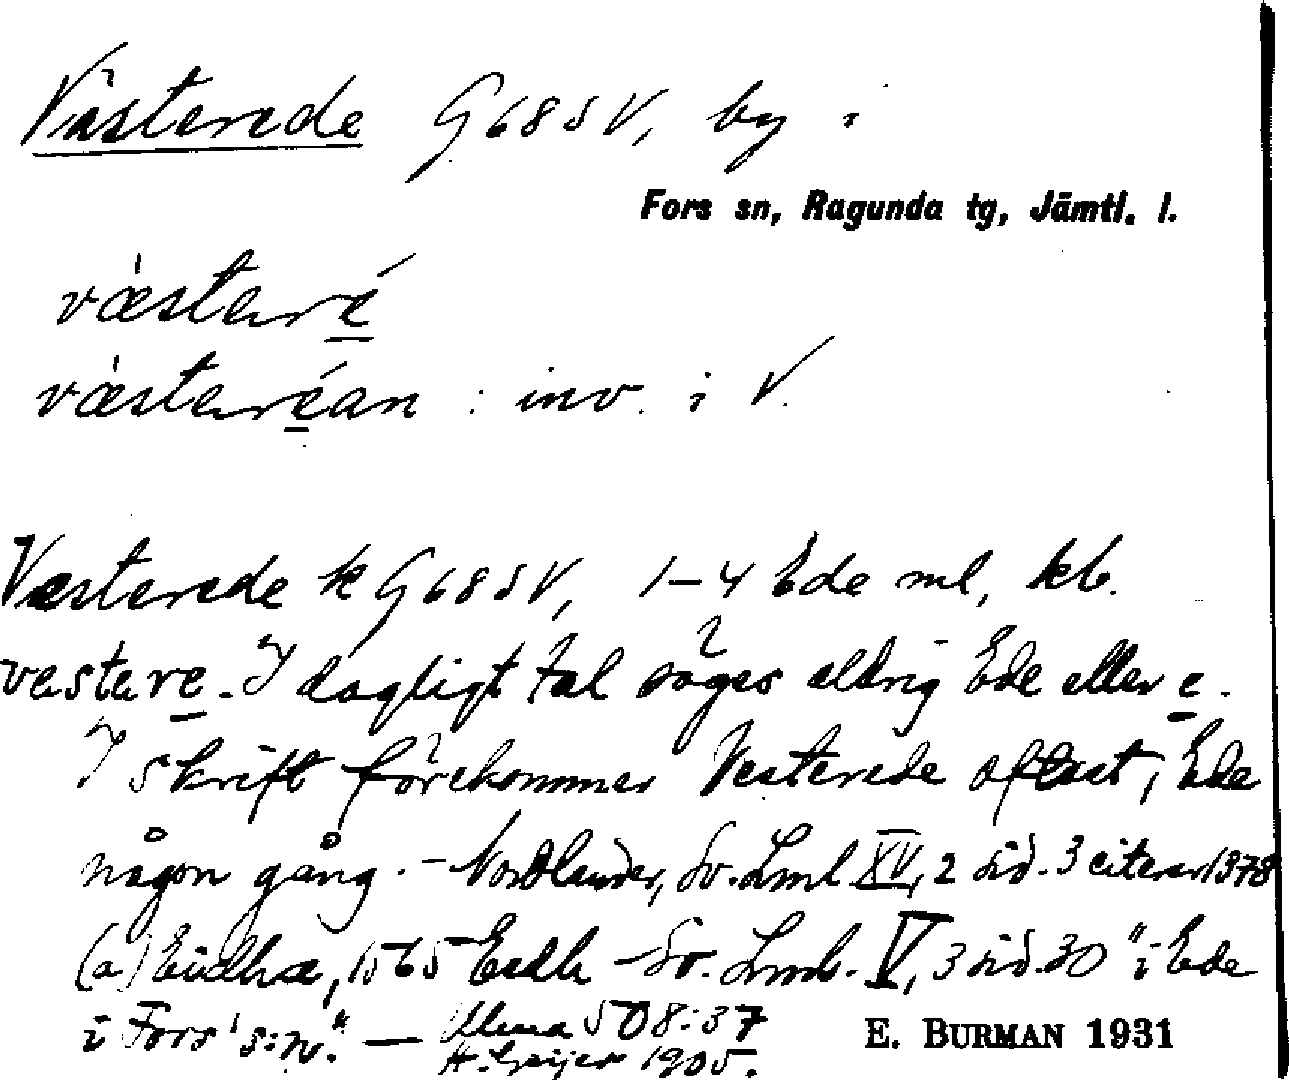 Västerede G68SV, by i
Fors sn, Ragunda tg, Jämtl. l.
västaré
västaréan : inv. i V.
Västerede k G68SV, 1–4 Ede ml, kb.
vestare. I dagligt tal säges aldrig Ede eller e.
I skrift förekommer Vesterede oftast, Ede
någon gång. – Nordlander, Sv. Lml XV, 2 sid. 3 citerar 1378
(a) Eidha, 1565 Eedh – Sv. Lmb. V, 3 sid. 30 "i Ede
i Fors s:n." — Ulma 508:37
H. Geijer 1905.
E. BURMAN 1931